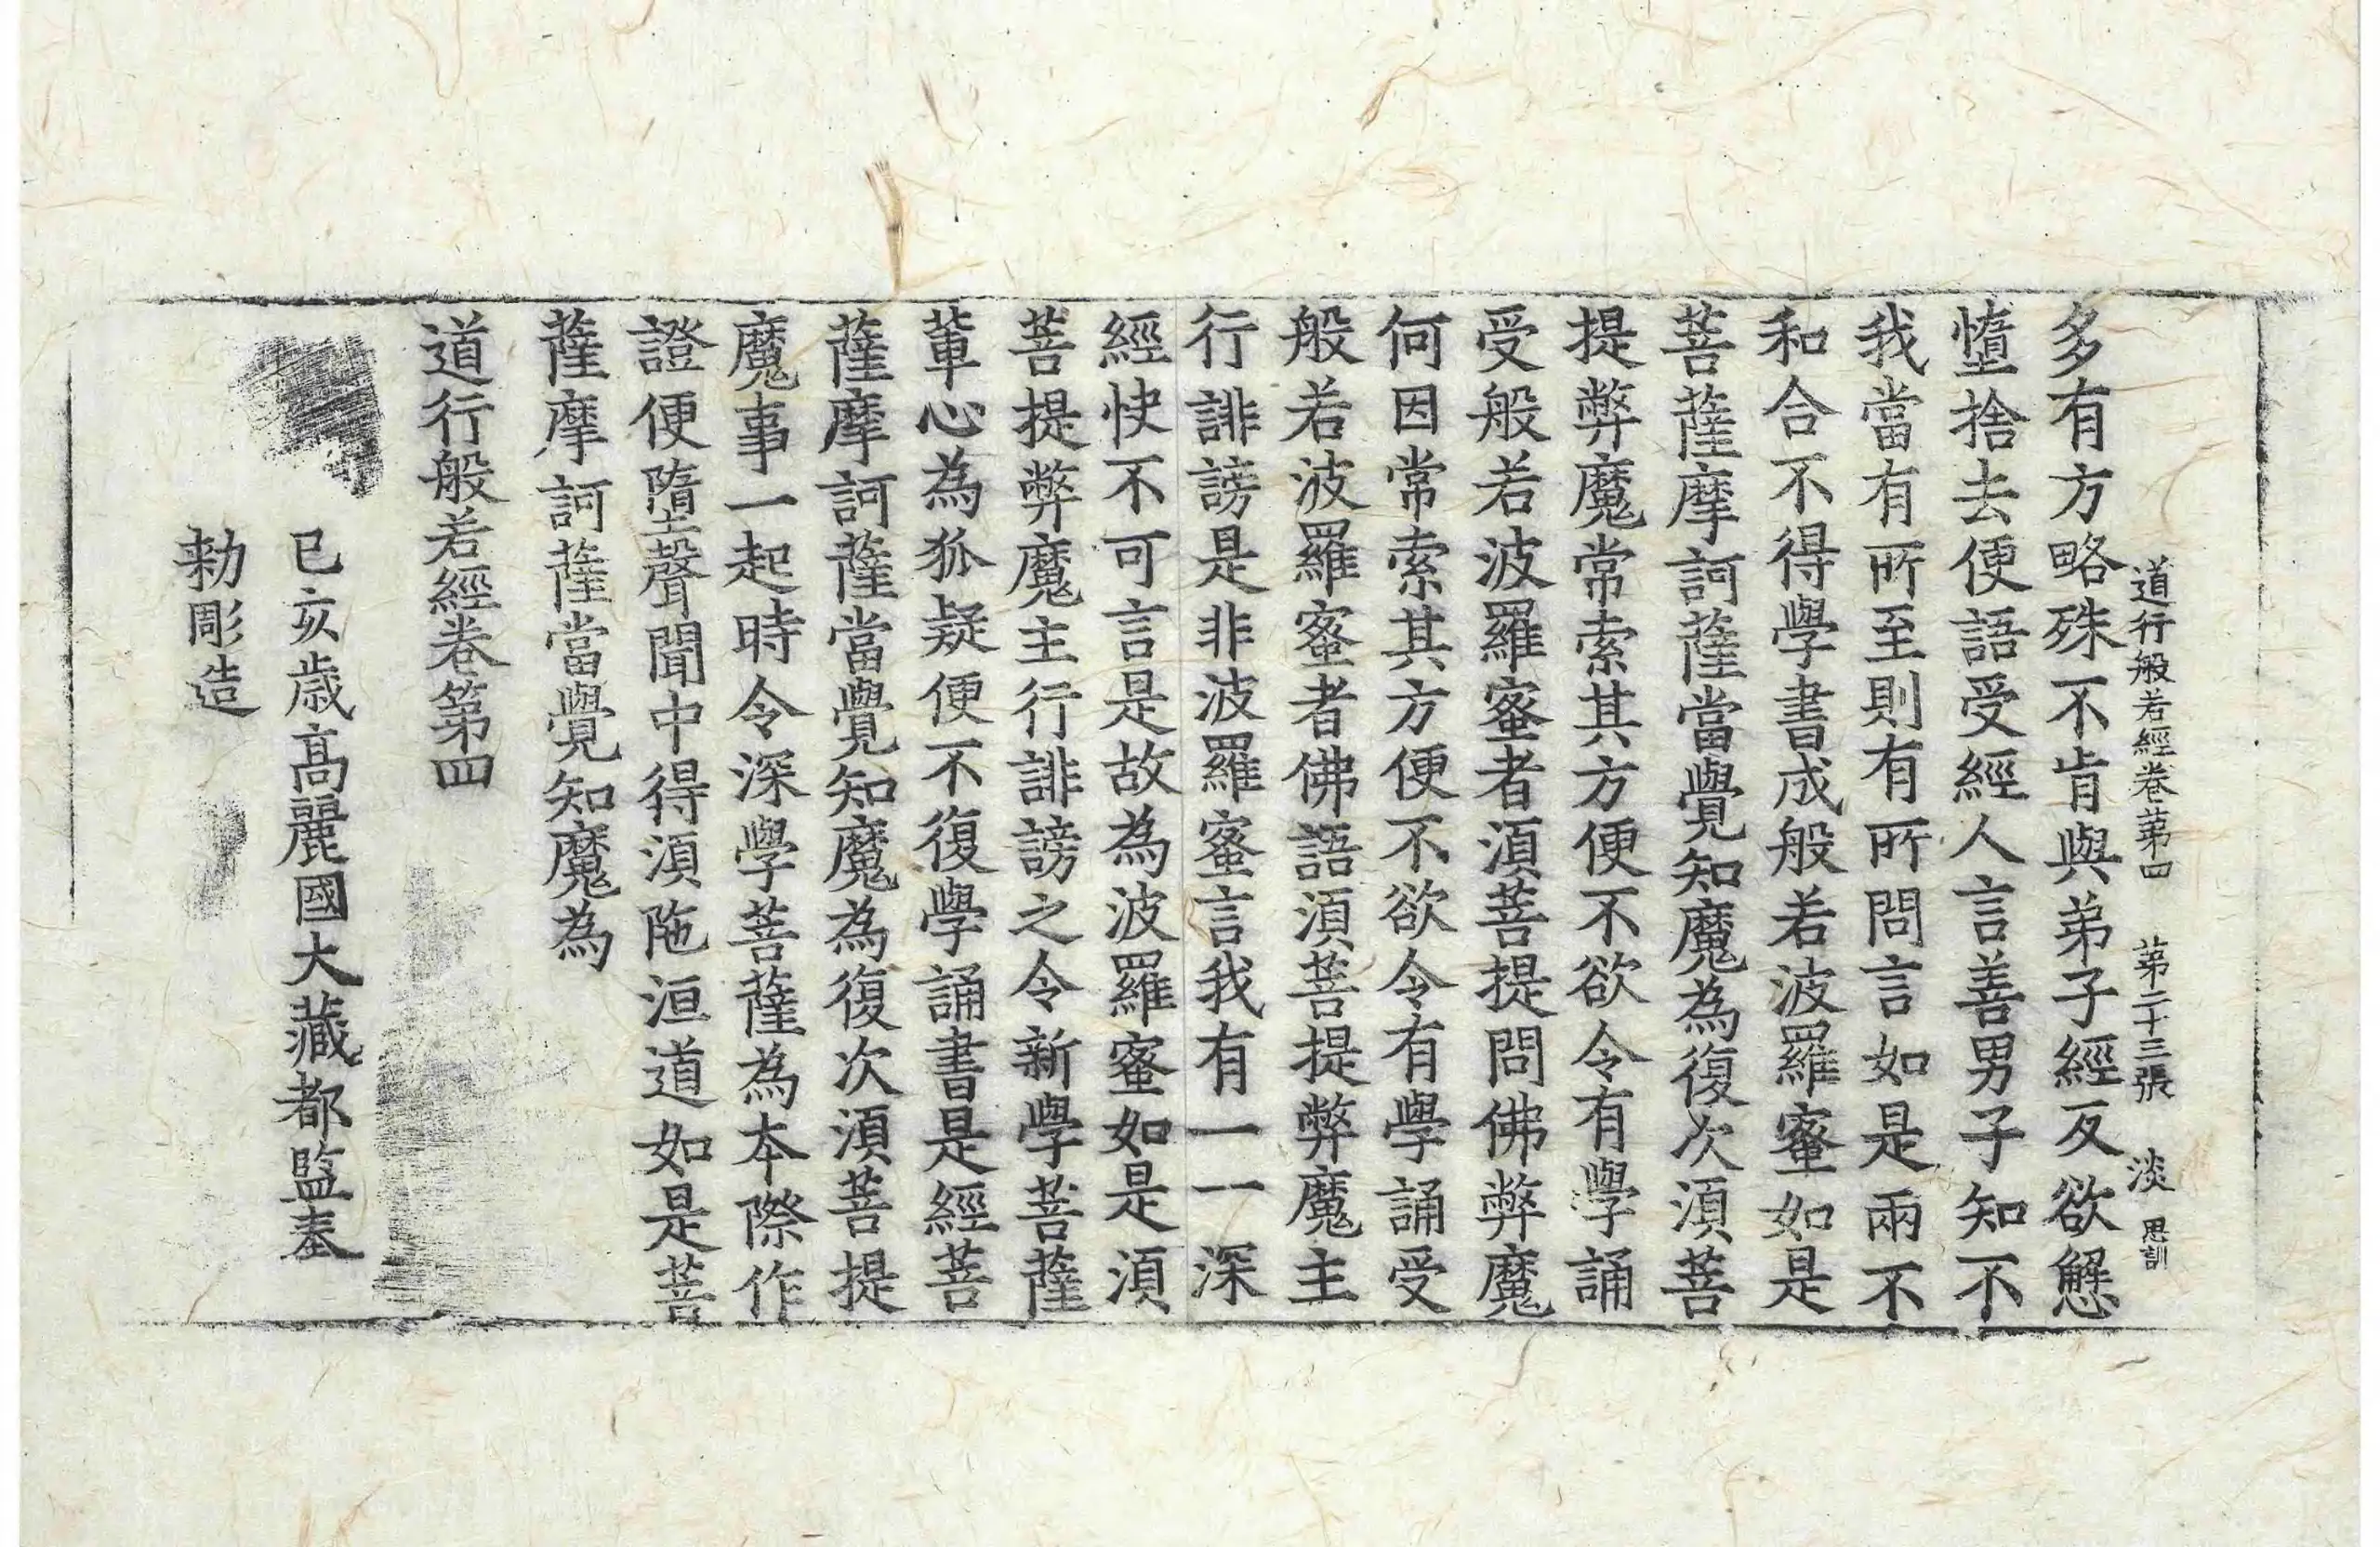 道行般若經卷第四 第二十三張 淡 思訓
多有方略殊不肯與弟子經反欲懈
墮捨去便語受經人言善男子知不
我當有所至則有所問言如是兩不
和合不得學書成般若波羅蜜如是
菩薩摩訶薩當覺知魔為復次須菩
提弊魔常索其方便不欲令有學誦
受般若波羅蜜者須菩提問佛弊魔
何因常索其方便不欲令有學誦受
般若波羅蜜者佛語須菩提弊魔主
行誹謗是非波羅蜜言我有一一深
經快不可言是故為波羅蜜如是須
菩提弊魔主行誹謗之令新學菩薩
輩心為狐疑便不復學誦書是經菩
薩摩訶薩當覺知魔為復次須菩提
魔事一起時令深學菩薩為本際作
證便墮聲聞中得須陁洹道如是菩
薩摩訶薩當覺知魔為
道行般若經卷第四
己亥歲高麗國大藏都監奉
勑彫造